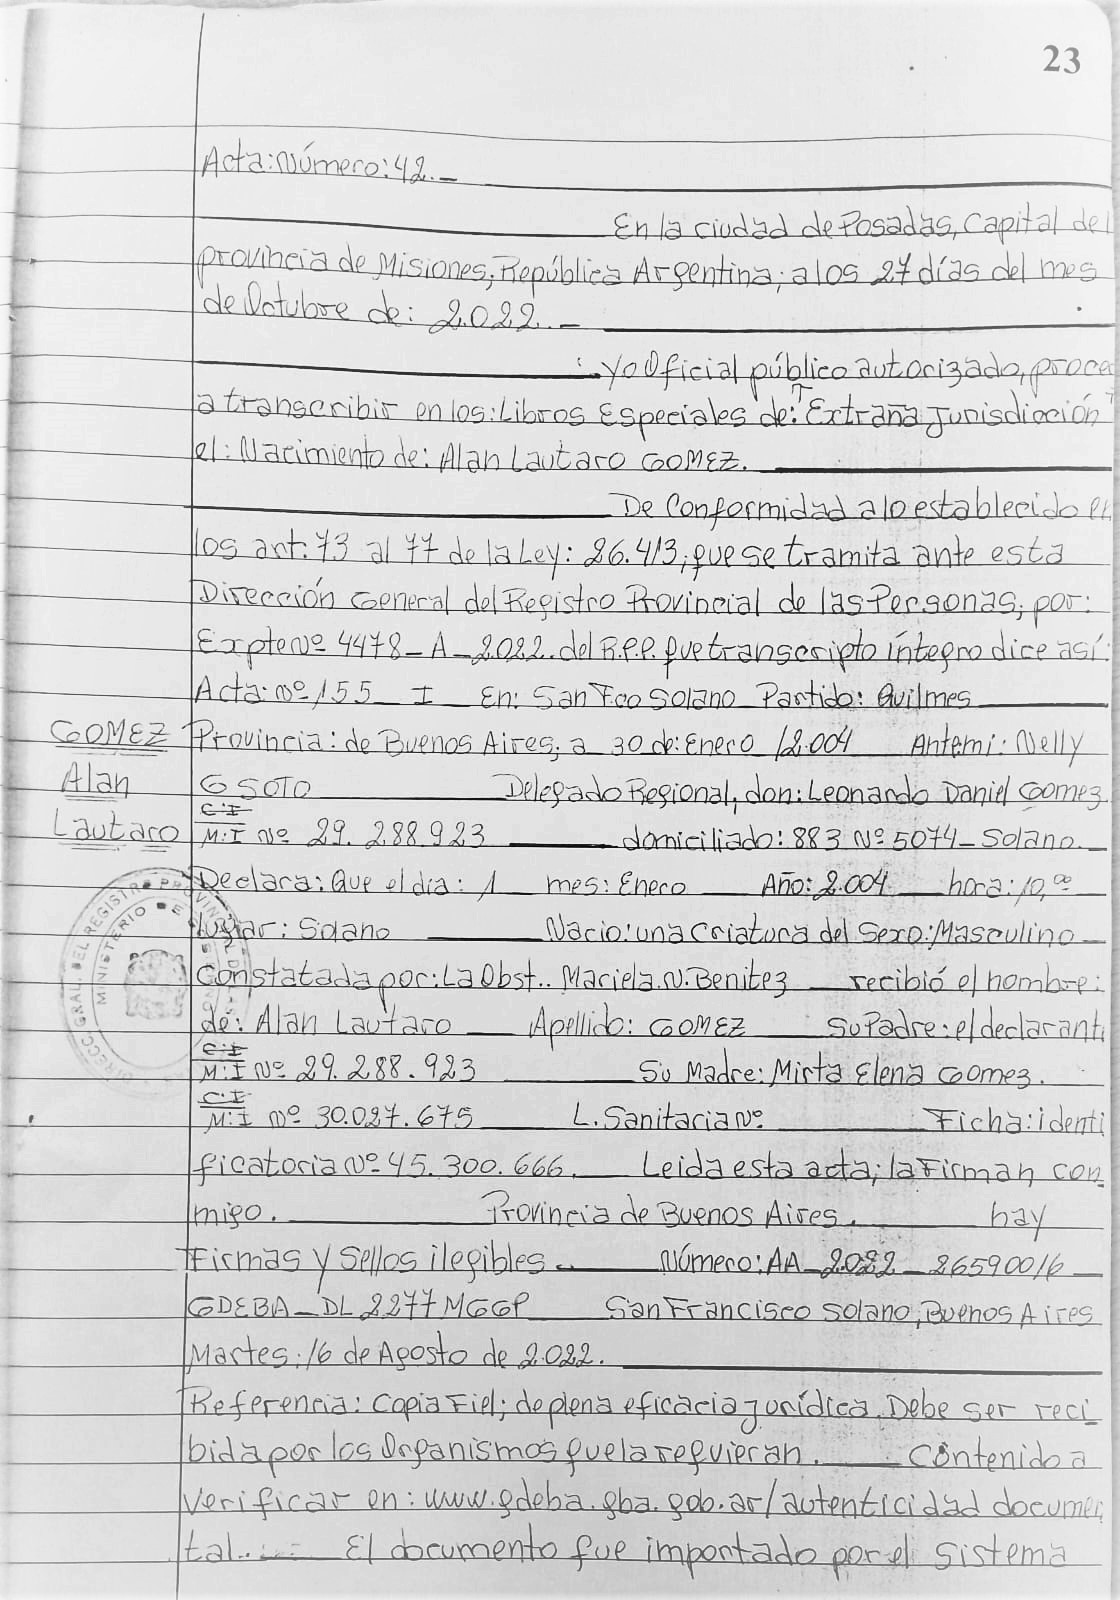 23
Acta: Número: 42._
En la ciudad de Posadas, Capital de
provincia de Misiones, República Argentina; a los 27 días del mes
de Octubre de: 2.022._
Yo Oficial público autorizado, proce
a transcribir en los: Libros Especiales de: "Extraña Jurisdicción"
el: Nacimiento de: Alan Lautaro GOMEZ.
De Conformidad a lo establecido en
los art: 73 al 77 de la Ley: 26.413; que se tramita ante esta
Dirección General del Registro Provincial de las Personas; por:
Expte Nº 4478_A_2022. del R.P.P. que transcripto íntegro dice así:
Acta: Nº 155 _ I _ En: San Fco Solano Partido: Quilmes
GOMEZ Provincia: de Buenos Aires; a 30 de: Enero /2.004 Antemi: Nelly
Alan G SOTO Delegado Regional, don: Leonardo Daniel Gomez.
C.I
Lautaro M.I Nº 29.288.923 domiciliado: 883 Nº 5074_Solano._
Declara: Que el día: 1 mes: Enero Año: 2.004 hora: 10,00
lugar: Solano Nacio: una Criatura del Sexo: Masculino
DIRECC GRAL. DEL REGISTRO PROVIN
MINISTERIO DE
Constatada por: La Obst.. Mariela.N.Benitez recibió el nombre:
de: Alan Lautaro Apellido: GOMEZ Su Padre: el declarant
C.I
M.I Nº 29.288.923 Su Madre: Mirta Elena Gomez.
C.I
M.I Nº 30.027.675 L.Sanitaria Nº Ficha: identi
ficatoria Nº 45.300.666. Leida esta acta; la Firman con_
migo. Provincia de Buenos Aires. hay
Firmas y Sellos ilegibles. Número: AA_2022_26590016
GDEBA_DL 2277 MGGP San Francisco Solano; Buenos Aires
Martes: 16 de Agosto de 2.022.
Referencia: Copia Fiel; de plena eficacia jurídica. Debe ser reci
bida por los Organismos que la requieran. Contenido a
verificar en: www.gdeba.gba.gob.ar/autenticidad documen
tal.. El documento fue importado por el Sistema